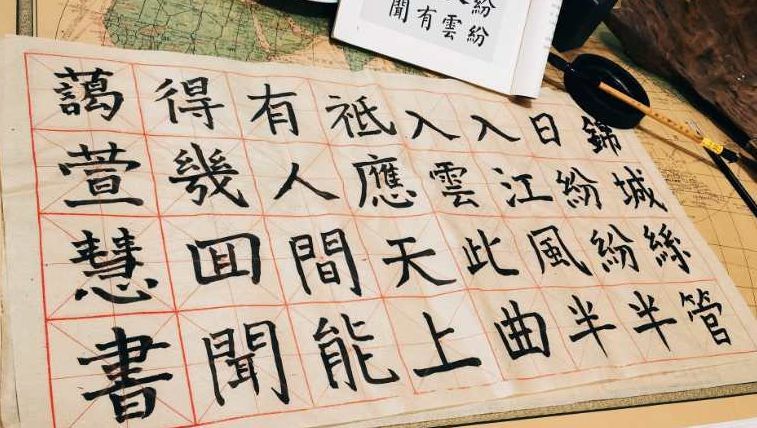 錦城絲管
日紛紛半
入江風半
入雲此曲
祗應天上
有人間能
得幾回聞
藹萱慧書
紛紛
雲
有
聞